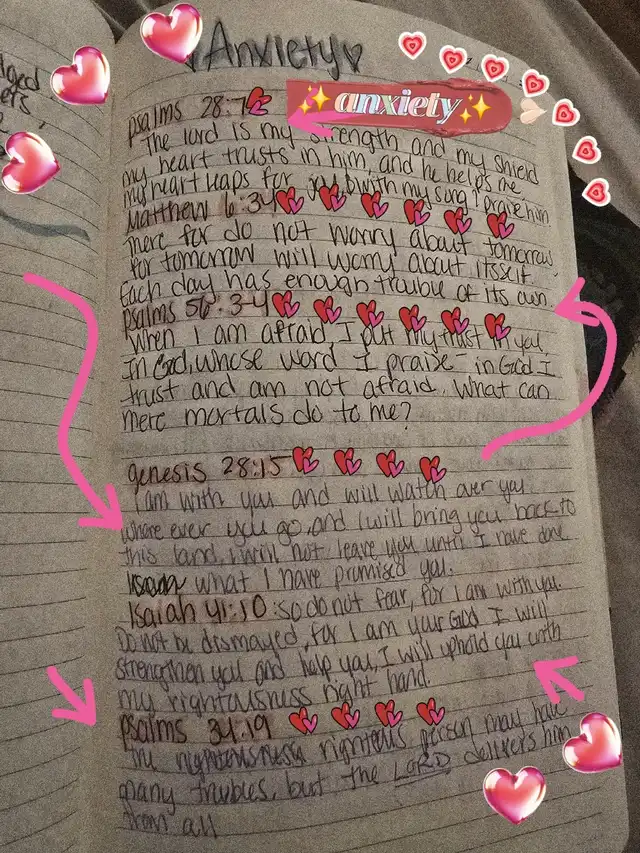 Anxiety
psalms 28:7
✨anxiety✨
The lord is my strength and my shield
my heart trusts in him, and he helps me
my heart leaps for joy, with my song I praise him
Matthew 6:34
There for do not worry about tomorrow,
for tomorrow will worry about itself.
Each day has enough trouble of its own
psalms 56:3-4
When I am afraid, I put my trust in you,
In God, whose word I praise- in God I
trust and am not afraid. What can
mere mortals do to me?
genesis 28:15
I am with you and will watch over you
where ever you go, and I will bring you back to
this land, I will not leave you until I have done
what I have promised you.
Isaiah 41:10: so do not fear, for I am with you.
Do not be dismayed, for I am your God I will
strengthen you and help you, I will uphold you with
my rightousness right hand.
psalms 34:19
The righteous person may have
many troubles, but the LORD delivers him
from all